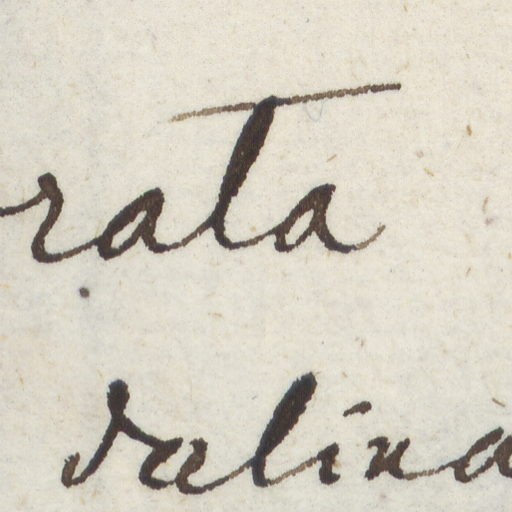 rata
dalina